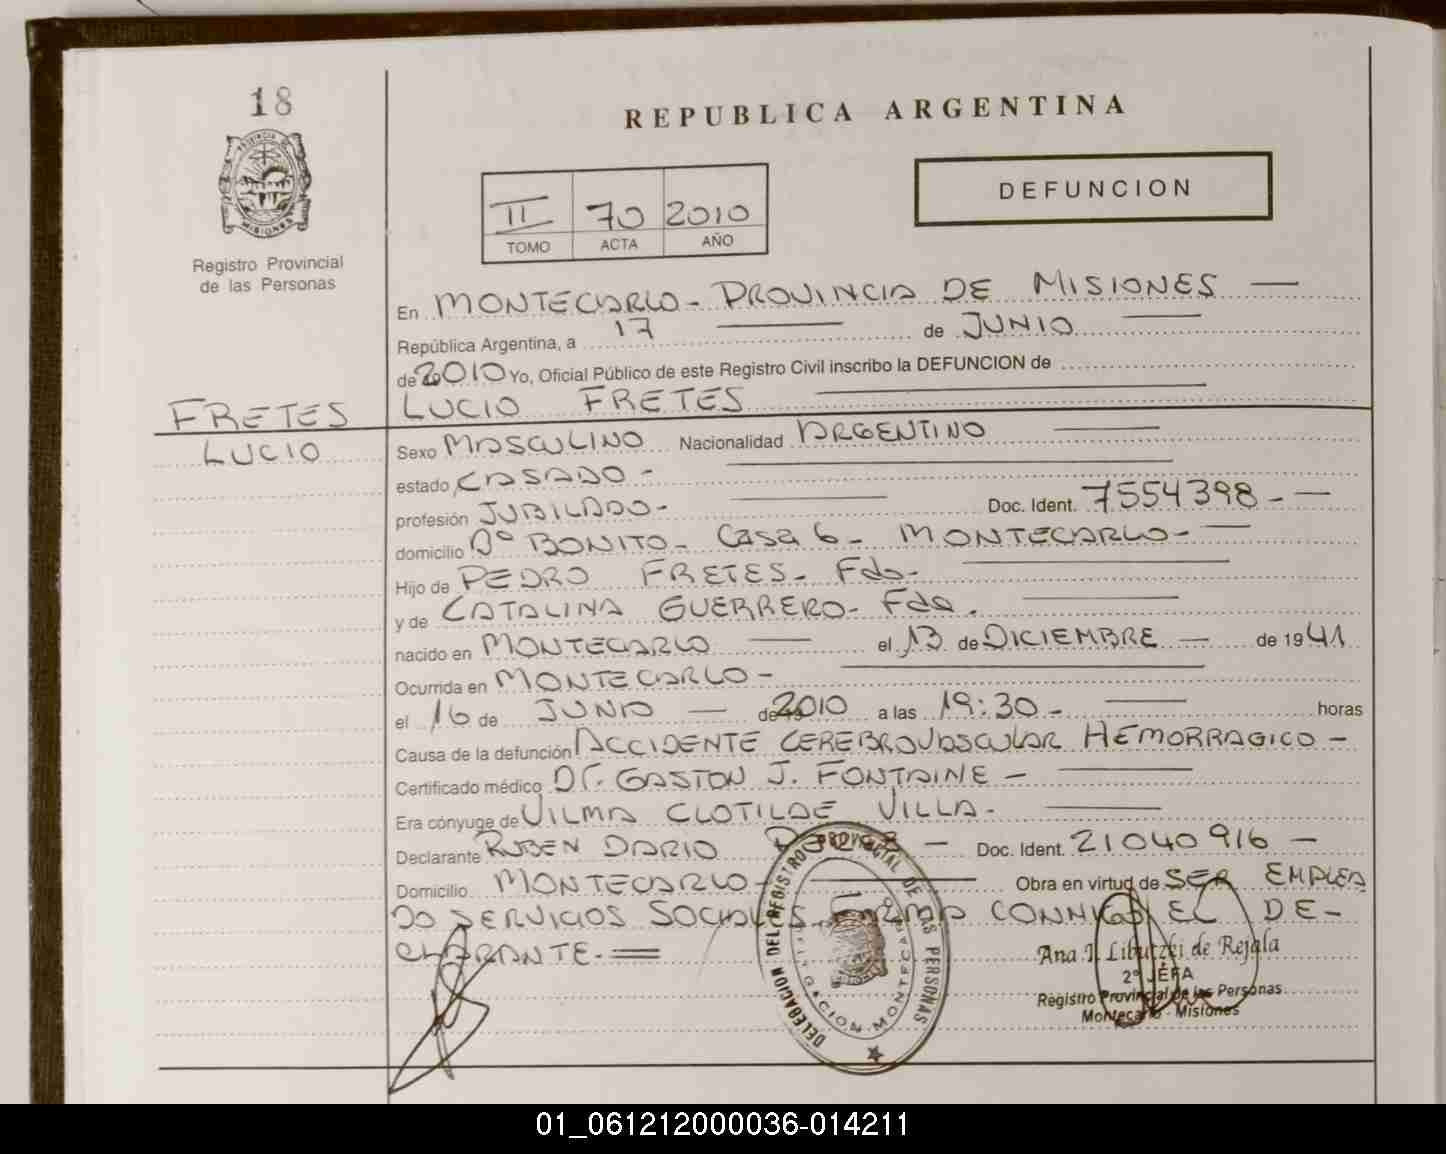 18
REPUBLICA ARGENTINA
PROVINCIA DE MISIONES
Registro Provincial
de las Personas
II 70 2010
TOMO ACTA AÑO
DEFUNCION
En MONTECARLO - PROVINCIA DE MISIONES —
República Argentina, a 17 — de JUNIO —
de 2010 Yo, Oficial Público de este Registro Civil inscribo la DEFUNCION de
FRETES LUCIO FRETES —
LUCIO Sexo MASCULINO Nacionalidad ARGENTINO —
estado CASADO - —
profesión JUBILADO - — Doc. Ident. 7554398 - —
domicilio Bº BONITO - Casa 6 - MONTECARLO - —
Hijo de PEDRO FRETES - Fdo - —
y de CATALINA GUERRERO - Fda. —
nacido en MONTECARLO — el 13 de DICIEMBRE — de 1941
Ocurrida en MONTECARLO - —
el 16 de JUNIO — de 2010 a las 19:30 - — horas
Causa de la defunción ACCIDENTE CEREBROVASCULAR HEMORRAGICO -
Certificado médico Dr. GASTON J. FONTAINE - —
Era cónyuge de VILMA CLOTILDE VILLA - —
Declarante RUBEN DARIO — Doc. Ident. 21040916 —
Domicilio MONTECARLO - — Obra en virtud de SER EMPLEA
DO SERVICIOS SOCIALES. FIRMA CONMIGO EL DE-
CLARANTE. =
DELEGACION DEL REGISTRO PROVINCIAL DE LAS PERSONAS
Ana I. Libutzki de Rejala
2º JEFA
Registro Provincial de las Personas
Montecarlo - Misiones
01_061212000036-014211